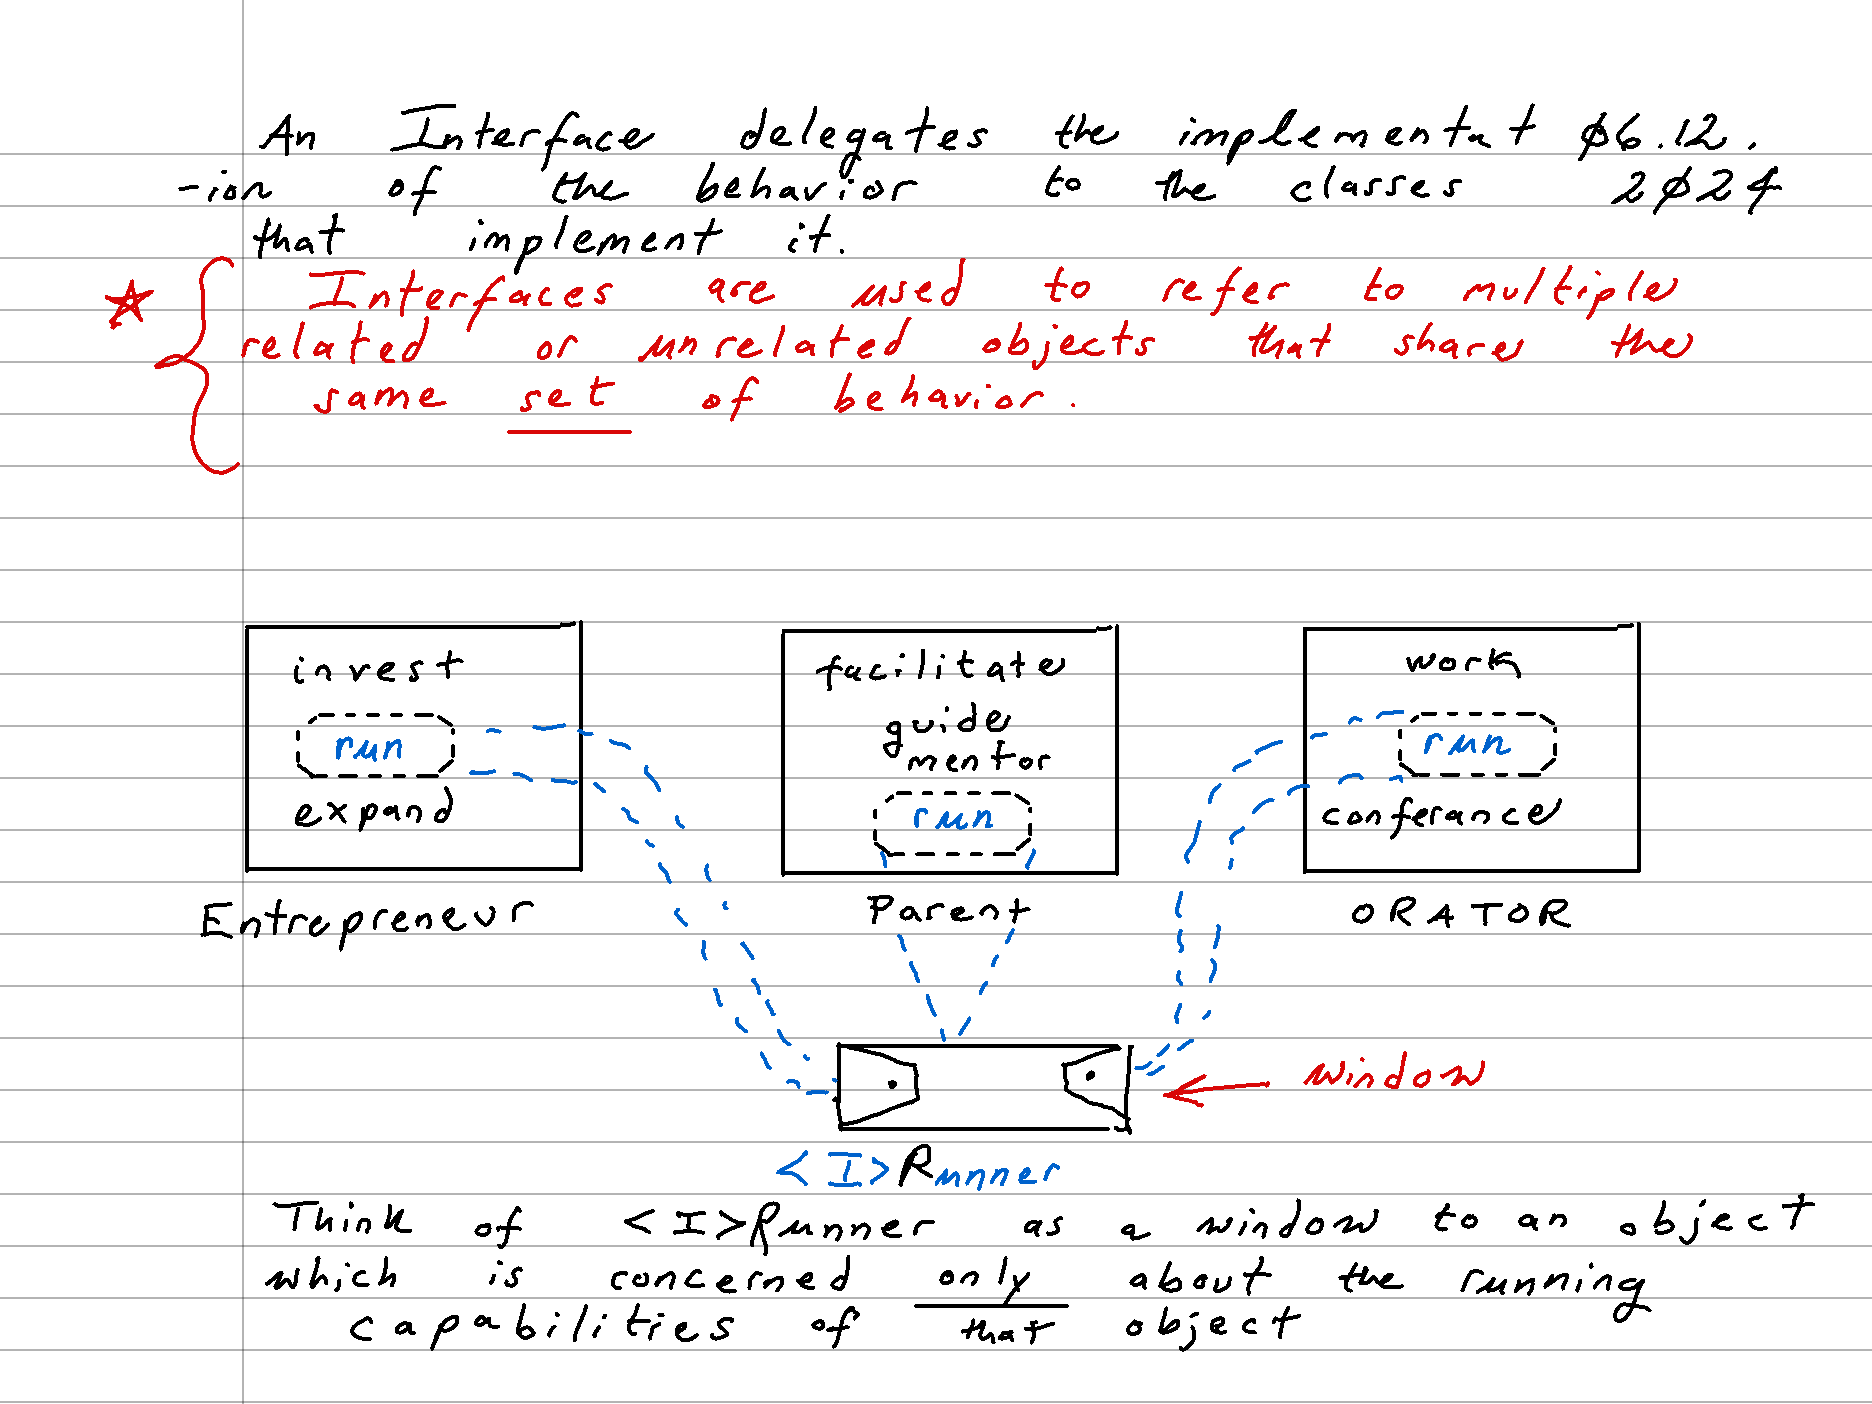 An Interface delegates the implementat 06.12.
-ion of the behavior to the classes 2024
that implement it.
Interfaces are used to refer to multiple
related or unrelated objects that share the
same set of behavior.
invest
run
expand
Entrepreneur
facilitate
guide
mentor
run
Parent
work
run
conferance
ORATOR
window
<I>Runner
Think of <I>Runner as a window to an object
which is concerned only about the running
capabilities of that object